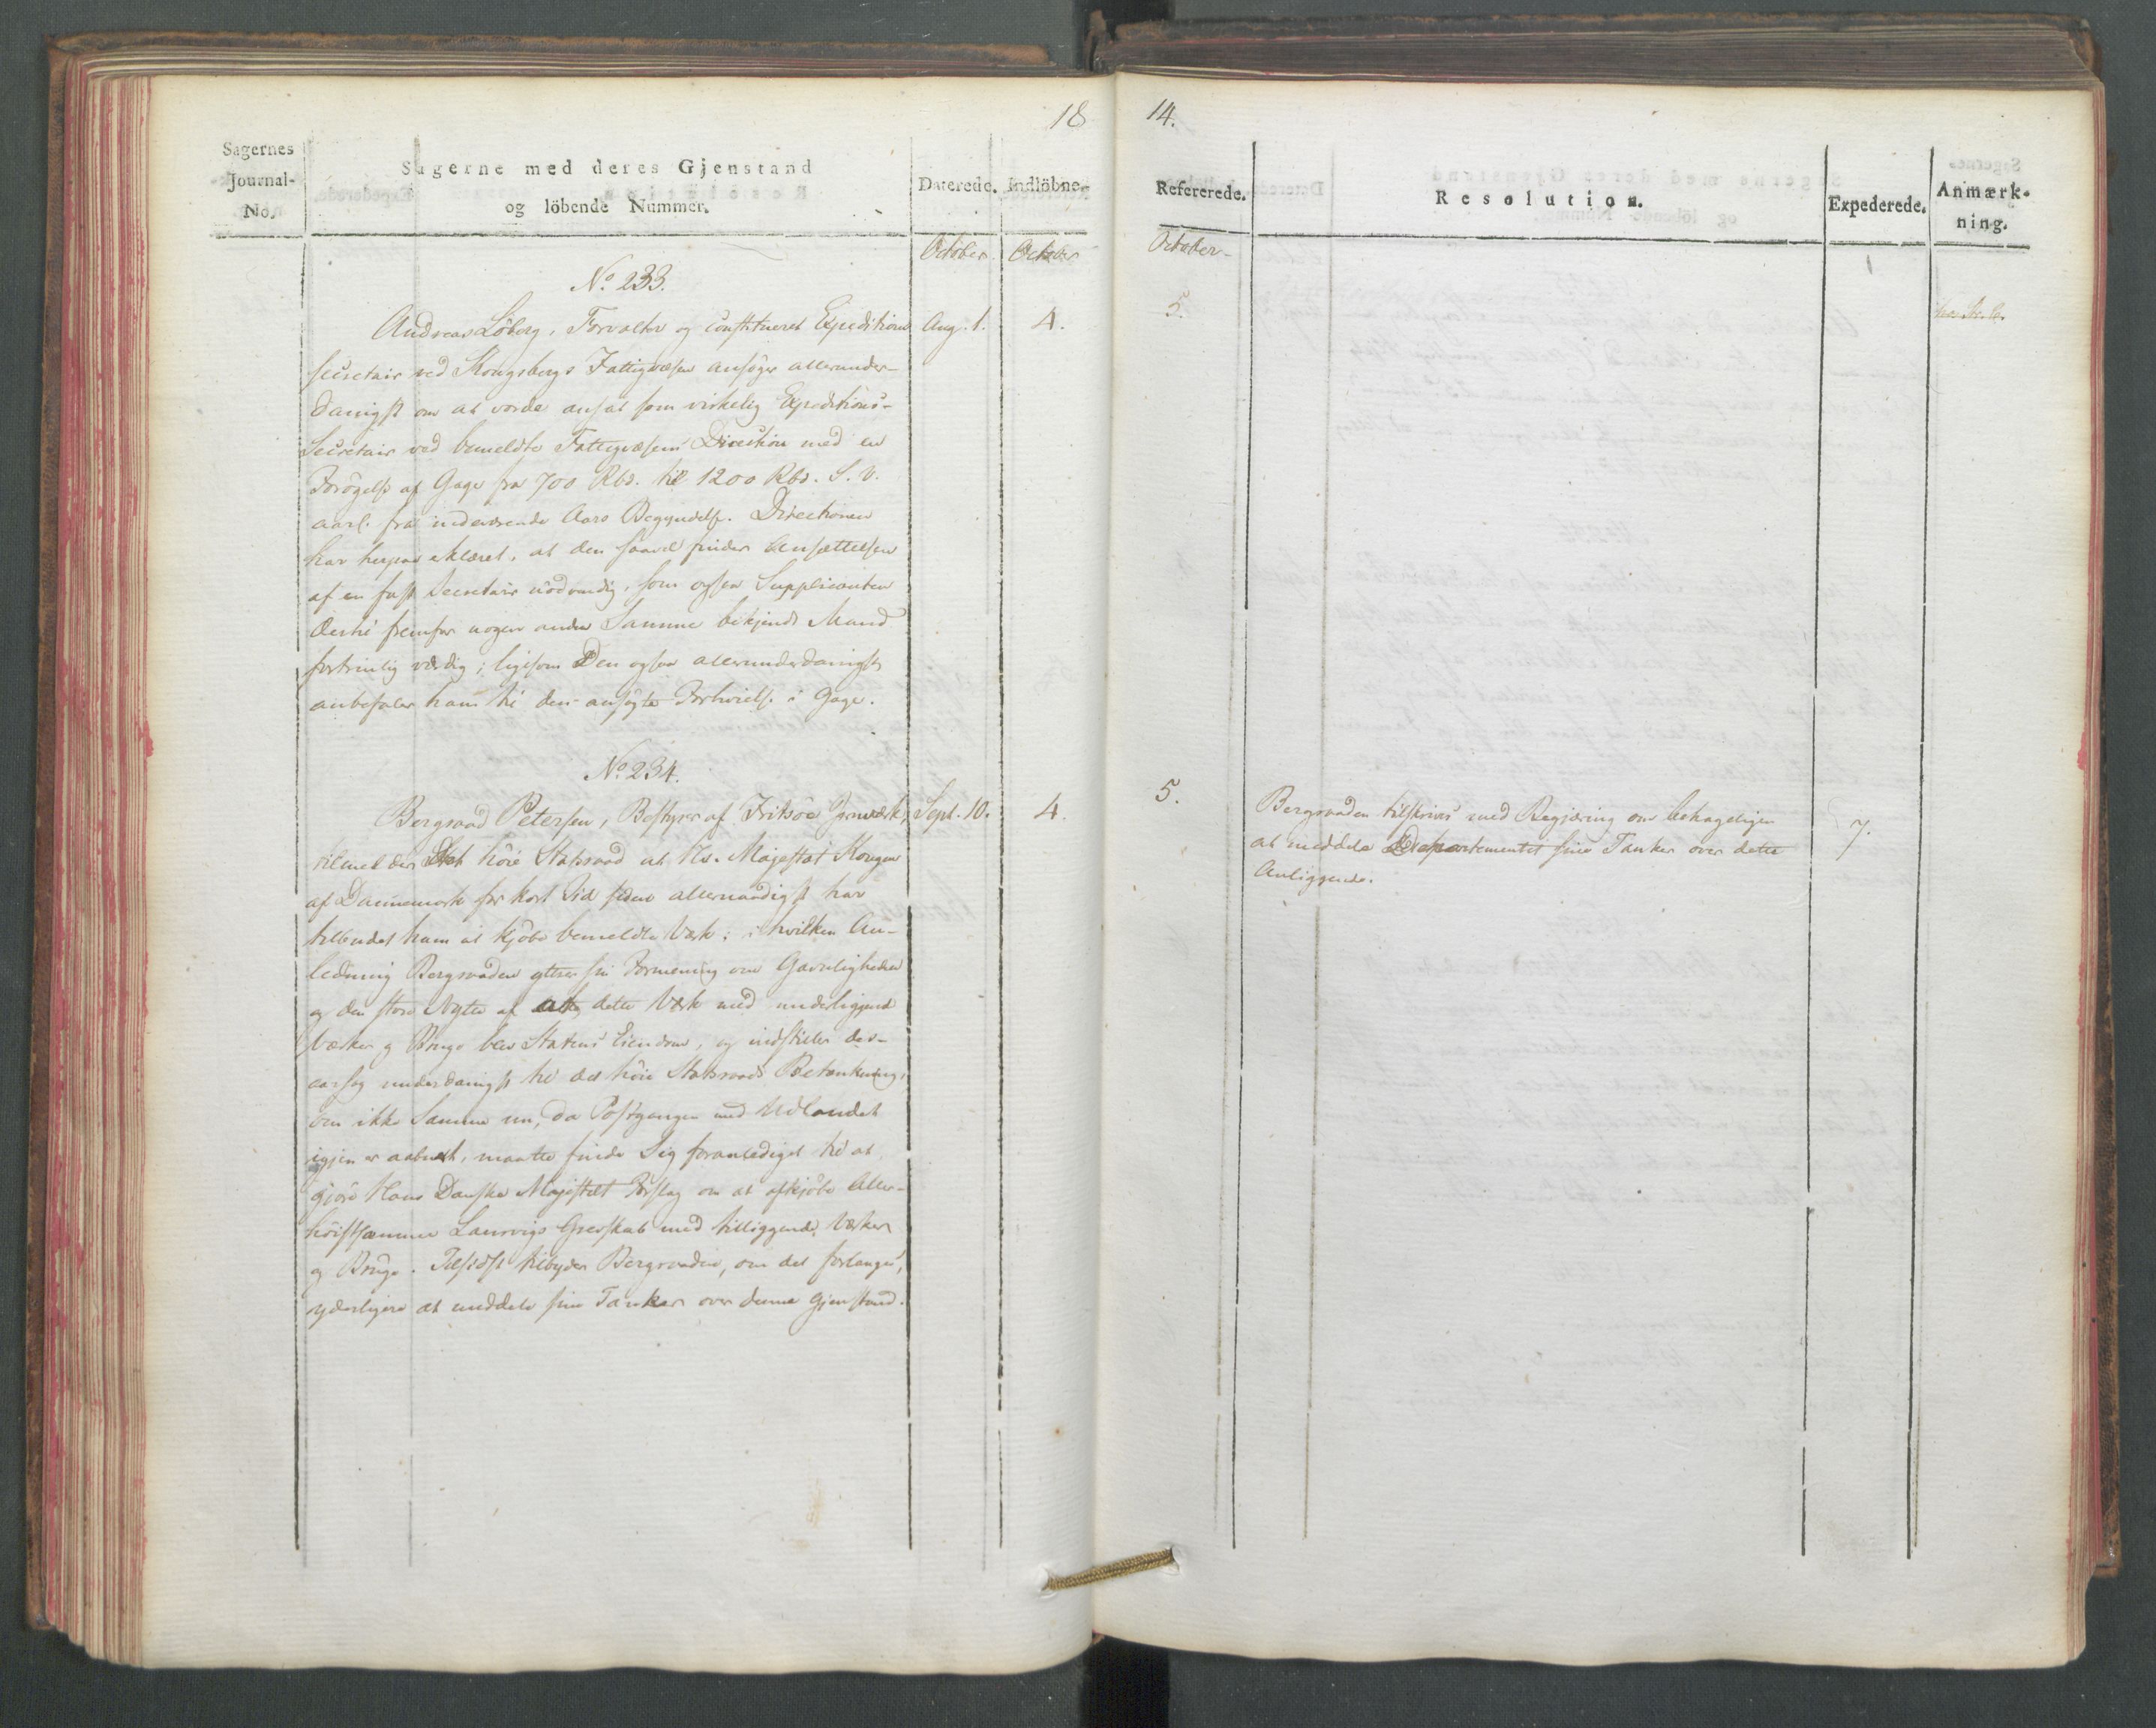 18
Sagernes
Journal-
No.
Sagerne med deres Gjenstand
og löbende Nummer.
Daterede.
Indlöbne.
October.
October
No. 233.
Andreas Löberg, Forvalter og constitueret Expeditions
Aug. 1.
4.
secretair ved Kongsbergs Fattigvæsen ansøger allerunder-
danigst om at vorde ansat som virkelig Expeditions-
Secretair ved bemeldte Fattigvæsens Direction med en
Forøgelse af Gage fra 700 Rbd. til 1200 Rbd. S. V.
aarl. fra indeværende Aars Begyndelse. Directionen
har herpaa erklæret, at den saavel finder Ansættelsen
af en fast Secretair nødvendig, som ogsaa Supplicanten
dertil fremfor nogen anden Samme bekjendt Mand
fortrinlig værdig; ligesom Den ogsaa allerunderdanigst
anbefaler ham til den ansøgte Forhøielse i Gage.
No. 234.
Bergraad Petersen, Bestyrer af Fritsöe Jernværk,
Sept. 10.
4.
tilmelder Det høie Statsraad at Hs. Majestæt Kongen
af Dannemark for kort Tid siden allernaadigst har
tilbudet ham at kjøbe bemeldte Værk; i hvilken An-
ledning Bergraaden yttrer sin Formening om Gavnligheden
og den store Nytte af at dette Værk med underliggende
Værker og Brug blev Statens Eiendom, og indstiller des-
aarsag underdanigst til det høie Statsraads Betænkning,
om ikke Samme nu, da Postgangen med Udlandet
igjen er aabnet, maatte finde Sig foranlediget til at
gjøre Hans Danske Majestæt Forslag om at afkjøbe Aller-
høistsamme Laurvigs Grevskab med tilliggende Værker
og Bruge. Tilsidst tilbyder Bergraaden, om det forlanges,
yderligere at meddele sine Tanker over denne Gjenstand.
14.
Refererede.
Resolution.
Expederede.
Anmærk-
ning.
October
5.
5.
Bergraaden tilskrives med Begjæring om behageligen
at meddele Departementet sine Tanker over dette
Anliggende.
7.